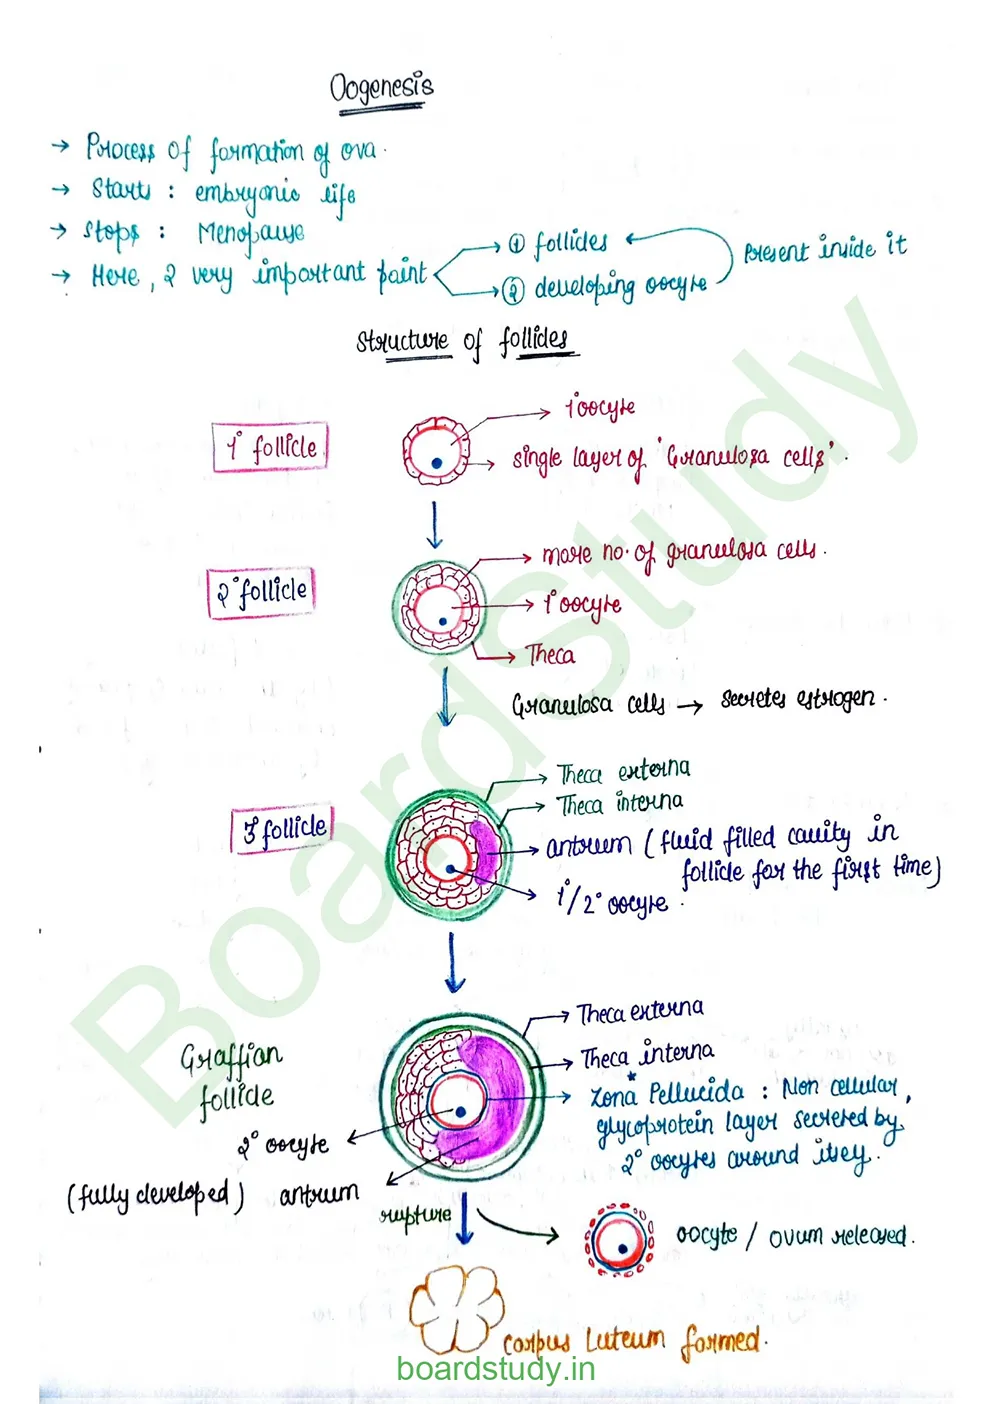 Oogenesis
→ Process of formation of ova.
→ Starts : embryonic life
→ Stops : Menopause
→ Here, 2 very important point
① follicles
② developing oocyte
Present inside it
Structure of follicles
1° follicle
1° oocyte
single layer of 'Granulosa cells'.
2° follicle
more no. of granulosa cells.
1° oocyte
Theca
Granulosa cells → secretes estrogen.
3° follicle
Theca externa
Theca interna
antrum (fluid filled cavity in
follicle for the first time)
1°/2° oocyte.
Graffian
follicle
Theca externa
Theca interna
Zona* Pellucida : Non cellular,
glycoprotein layer secreted by
2° oocytes around itself.
2° oocyte
(fully developed) antrum
rupture
oocyte / ovum released.
corpus Luteum formed.
boardstudy.in
BoardStudy